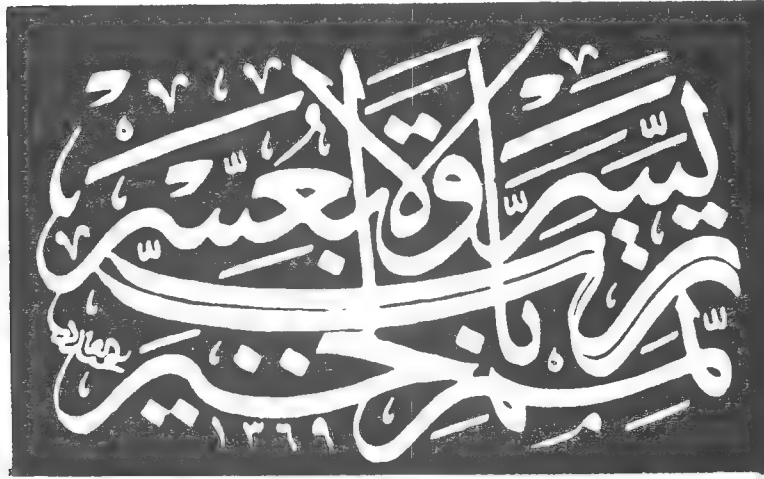 رَبِّ يَسِّرْ وَلَا تُعَسِّرْ
رَبِّ تَمِّمْ بِالْخَيْرِ
١٣٦٩